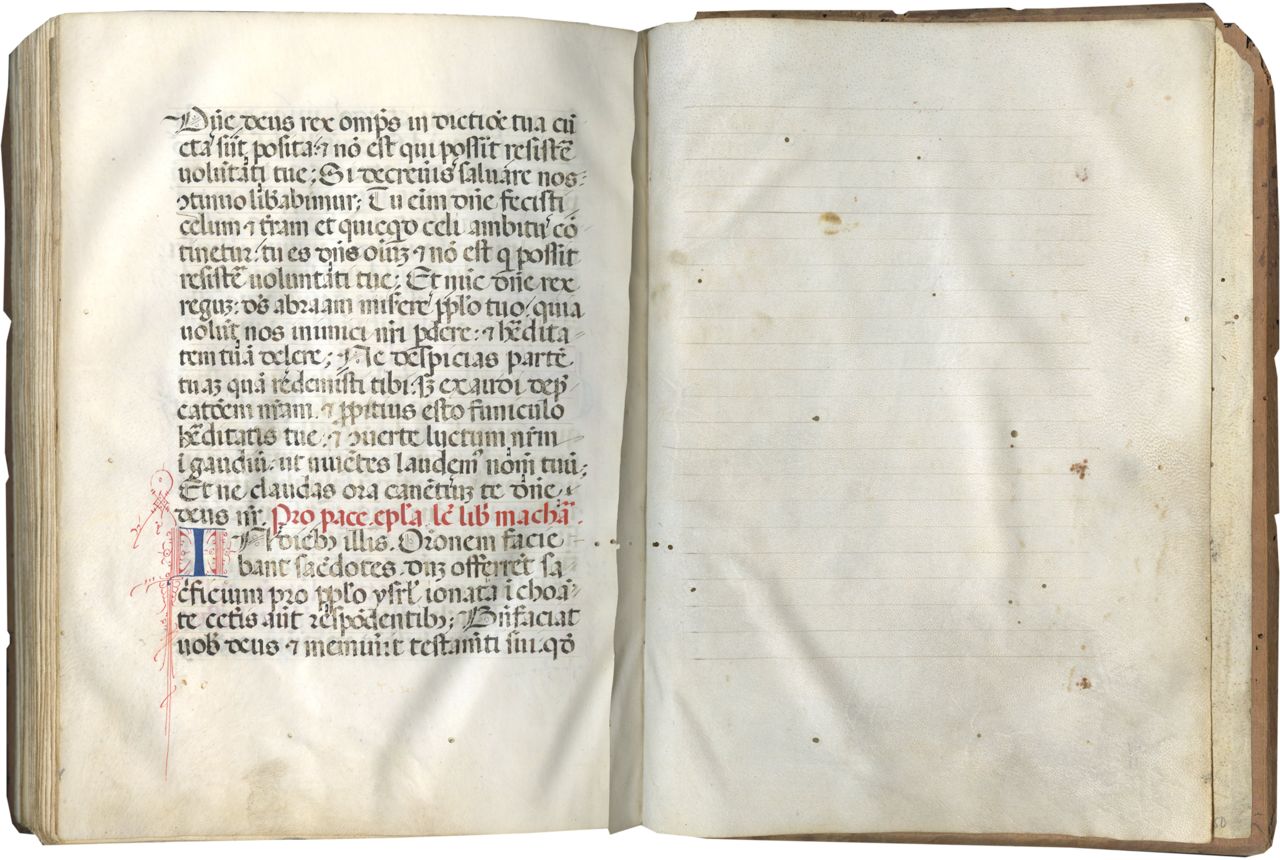 Dn̄e deus rex omp̄s in dictiōe tua cū
cta sūt posita ⁊ nō est qui possit resistē
uolūtati tue: Si decreuis saluare nos
ↄtinuo lib̄abimur: Tu eīm dn̄e fecisti
celum ⁊ t̄ram et quicq̄d celi ambitu cō
tinetur: tu es dn̄s oīuꝫ ⁊ nō est q possit
resistē uoluntati tue: Et nūc dn̄e rex
reguꝫ: ds̄ abraam miserē pp̄lo tuo: quia
uolūt nos inimici nr̄i pd̄ere: ⁊ hēdita
tem tuā delere: Ne despicias partē
tuaꝫ quā rēdemisti tibi: sꝫ exaudi dep̄
catōem nr̄am. ⁊ pp̄itius esto funiculo
hēditatis tue: ⁊ ↄuerte luctum nr̄m
i gaudiū: ut uiuētes laudemꝰ nom̄ tuū:
Et ne claudas ora canētiuꝫ te dn̄e
deus nr̄. Pro pace. ep̄sla. lc̄ lib̄ machā.
IN diebꝫ illis. Orōnem facie
bant sac̄dotes. dūꝫ offerrēt sa
c̄ficium pro pp̄lo ysrl̄ ionata īchoā
te cet̄is aūt respōdentibꝫ: Bn̄faciat
uob̄ deus ⁊ memin̄it testam̄ti sui. qd̄
60